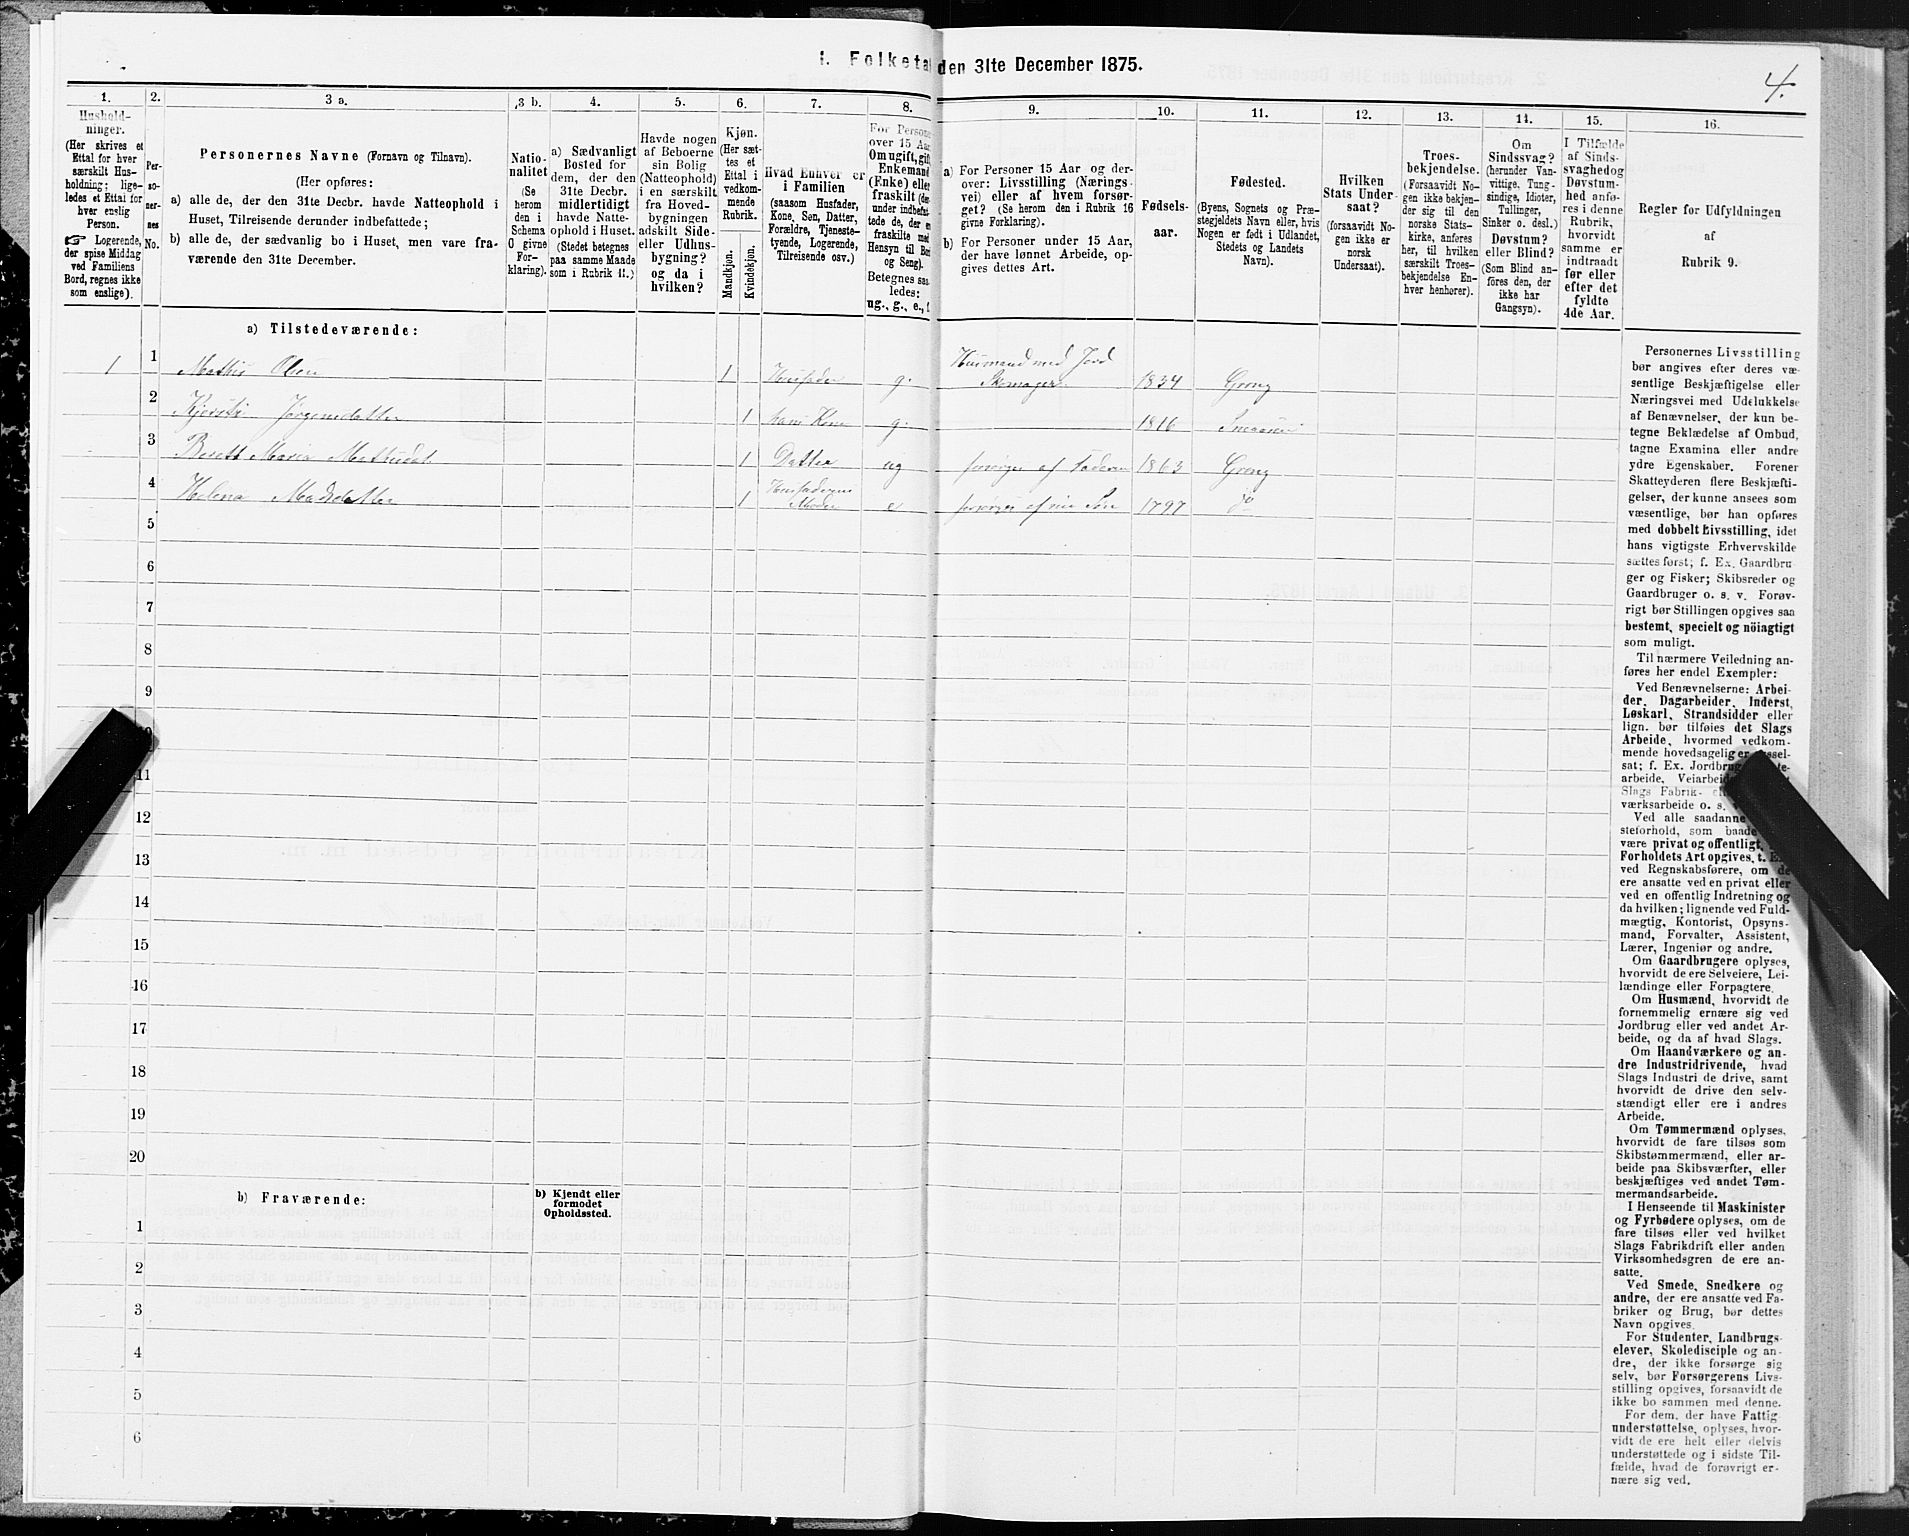 1. Folketal den 31te December 1875.
4.
1.
Hushold-
ninger.
(Her skrives et
Ettal for hver
særskilt Hus-
holdning; lige-
ledes et Ettal for
hver enslig
Person.
☞ Logerende,
der spise Middag
ved Familiens
Bord, regnes ikke
som enslige).
2.
Per-
so-
ner-
nes
No.
3 a.
Personernes Navne (Fornavn og Tilnavn).
(Her opføres:
a) alle de, der den 31te Decbr. havde Natteophold i
Huset, Tilreisende derunder indbefattede;
b) alle de, der sædvanlig bo i Huset, men vare fra-
værende den 31te December.
3 b.
Natio-
nalitet
(Se
herom
den i
Schema
O givne
For-
klaring).
4.
a) Sædvanligt
Bosted for
dem, der den
31te Decbr.
midlertidigt
havde Natte-
ophold i Huset.
(Stedet betegnes
paa samme Maade
som i Rubrik 11.)
5.
Havde nogen
af Beboerne
sin Bolig
(Natteophold)
i en særskilt
fra Hoved-
bygningen
adskilt Side-
eller Udhus-
bygning?
og da i
hvilken?
6.
Kjøn.
(Her sæt-
tes et
Ettal i
vedkom-
mende
Rubrik.
Mandkjøn.
Kvindekjøn.
7.
Hvad Enhver er
i Familien
(saasom Husfader,
Kone, Søn, Datter,
Forældre, Tjeneste-
tyende, Logerende,
Tilreisende osv.)
8.
For Personer
over 15 Aar
Om ugift, gift,
Enkemand
(Enke) eller
fraskilt (der-
under indbefat-
tede de, der ere
fraskilte med
Hensyn til Bord
og Seng).
Betegnes saa-
ledes:
ug., g., e., f.
9.
a) For Personer 15 Aar og der-
over: Livsstilling (Nærings-
vei) eller af hvem forsør-
get? (Se herom den i Rubrik 16
givne Forklaring).
b) For Personer under 15 Aar,
der have lønnet Arbeide, op-
gives dettes Art.
10.
Fødsels-
aar.
11.
Fødested.
(Byens, Sognets og Præ-
stegjeldets Navn eller, hvis
Nogen er født i Udlandet,
Stedets og Landets
Navn).
12.
Hvilken
Stats Under-
saat?
(forsaavidt No-
gen ikke er
norsk
Undersaat).
13.
Troes-
bekjendelse.
(Forsaavidt No-
gen ikke bekjen-
der sig til den
norske Stats-
kirke, anføres
her, til hvilken
særskilt Troes-
bekjendelse En-
hver henhører).
14.
Om
Sindssvag?
(herunder Van-
vittige, Tung-
sindige, Idioter,
Tullinger,
Sinker o. desl.)
Døvstum?
eller Blind?
(Som Blind an-
føres den, der
ikke har
Gangsyn).
15.
I Tilfælde
af Sinds-
svaghed og
Døvstum-
hed anfø-
res i denne
Rubrik,
hvorvidt
samme er
indtraadt
før eller
efter det
fyldte
4de Aar.
16.
Regler for Udfyldningen
af
Rubrik 9.
a) Tilstedeværende:
1 1 Mathis Olsen 1 Husfader g. Husmand med Jord
Skomager 1834 Grong
2 Kjersti Jørgensdatter 1 hans Kone g. 1816 Snaasen
3 Berett Maria Mathisdat. 1 Datter ug forsørges af Faderen 1863 Grong
4 Helena Madsdatter 1 Husfaderens
Moder e forsørges af sin Søn 1797 do
5
6
7
8
9
11
12
13
14
15
16
17
18
19
20
b) Fraværende:
b) Kjendt eller
formodet
Opholdssted.
1
2
3
4
5
6
Personernes Livsstilling
bør angives efter deres væ-
sentlige Beskjæftigelse eller
Næringsvei med Udelukkelse
af Benævnelser, der kun be-
tegne Beklædelse af Ombud,
tagne Examina eller andre
ydre Egenskaber. Forener
Skatteyderen flere Beskjæfti-
gelser, der kunne ansees som
væsentlige, bør han opføres
med dobbelt Livsstilling, idet
hans vigtigste Erhvervskilde
sættes først; f. Ex. Gaardbru-
ger og Fisker; Skibsreder og
Gaardbruger o. s. v. Forøv-
rigt bør Stillingen opgives saa
bestemt, specielt og nöiagtigt
som muligt.
Til nærmere Veiledning an-
føres her endel Exempler:
Ved Benævnelserne: Arbei-
der, Dagarbeider, Inderst,
Løskarl, Strandsidder eller
lign. bør tilføies det Slags
Arbeide, hvormed vedkom-
mende hovedsagelig er syssel-
sat; f. Ex. Jordbrug
arbeide, Veiarbeide
Slags Fabrik-
værksarbeide o. s.
Ved alle saadanne
steforhold, som baade
være privat og offentligt,
Forholdets Art opgives, t. Ex.
ved Regnskabsførere, om de
ere ansatte ved en privat eller
ved en offentlig Indretning og
da hvilken; lignende ved Fuld-
mægtig, Kontorist, Opsyns-
mand, Forvalter, Assistent,
Lærer, Ingeniør og andre.
Om Gaardbrugere oplyses,
hvorvidt de ere Selveiere, Lei-
lændinge eller Forpagtere.
Om Husmænd, hvorvidt de
fornemmelig ernære sig ved
Jordbrug eller ved andet Ar-
beide, og da af hvad Slags.
Om Haandværkere og an-
dre Industridrivende, hvad
Slags Industri de drive, samt
hvorvidt de drive den selv-
stændigt eller ere i andres
Arbeide.
Om Tømmermænd oplyses,
hvorvidt de fare tilsøs som
Skibstømmermænd, eller ar-
beide paa Skibsværfter, eller
beskjæftiges ved andet Tøm-
mermandsarbeide.
I Henseende til Maskinister
og Fyrbødere oplyses, om de
fare tilsøs eller ved hvilket
Slags Fabrikdrift eller anden
Virksomhedsgren de ere an-
satte.
Ved Smede, Snedkere og
andre, der ere ansatte ved Fa-
briker og Brug, bør dettes
Navn opgives.
For Studenter, Landbrugs-
elever, Skoledisciple og an-
dre, der ikke forsørge sig
selv, bør Forsørgerens Livs-
stilling opgives, forsaavidt de
ikke bo sammen med denne.
For dem, der have Fattig-
understøttelse, oplyses, hvor-
vidt de ere helt eller delvis
understøttede og i sidste Til-
fælde, hvad de forøvrigt er-
nære sig ved.